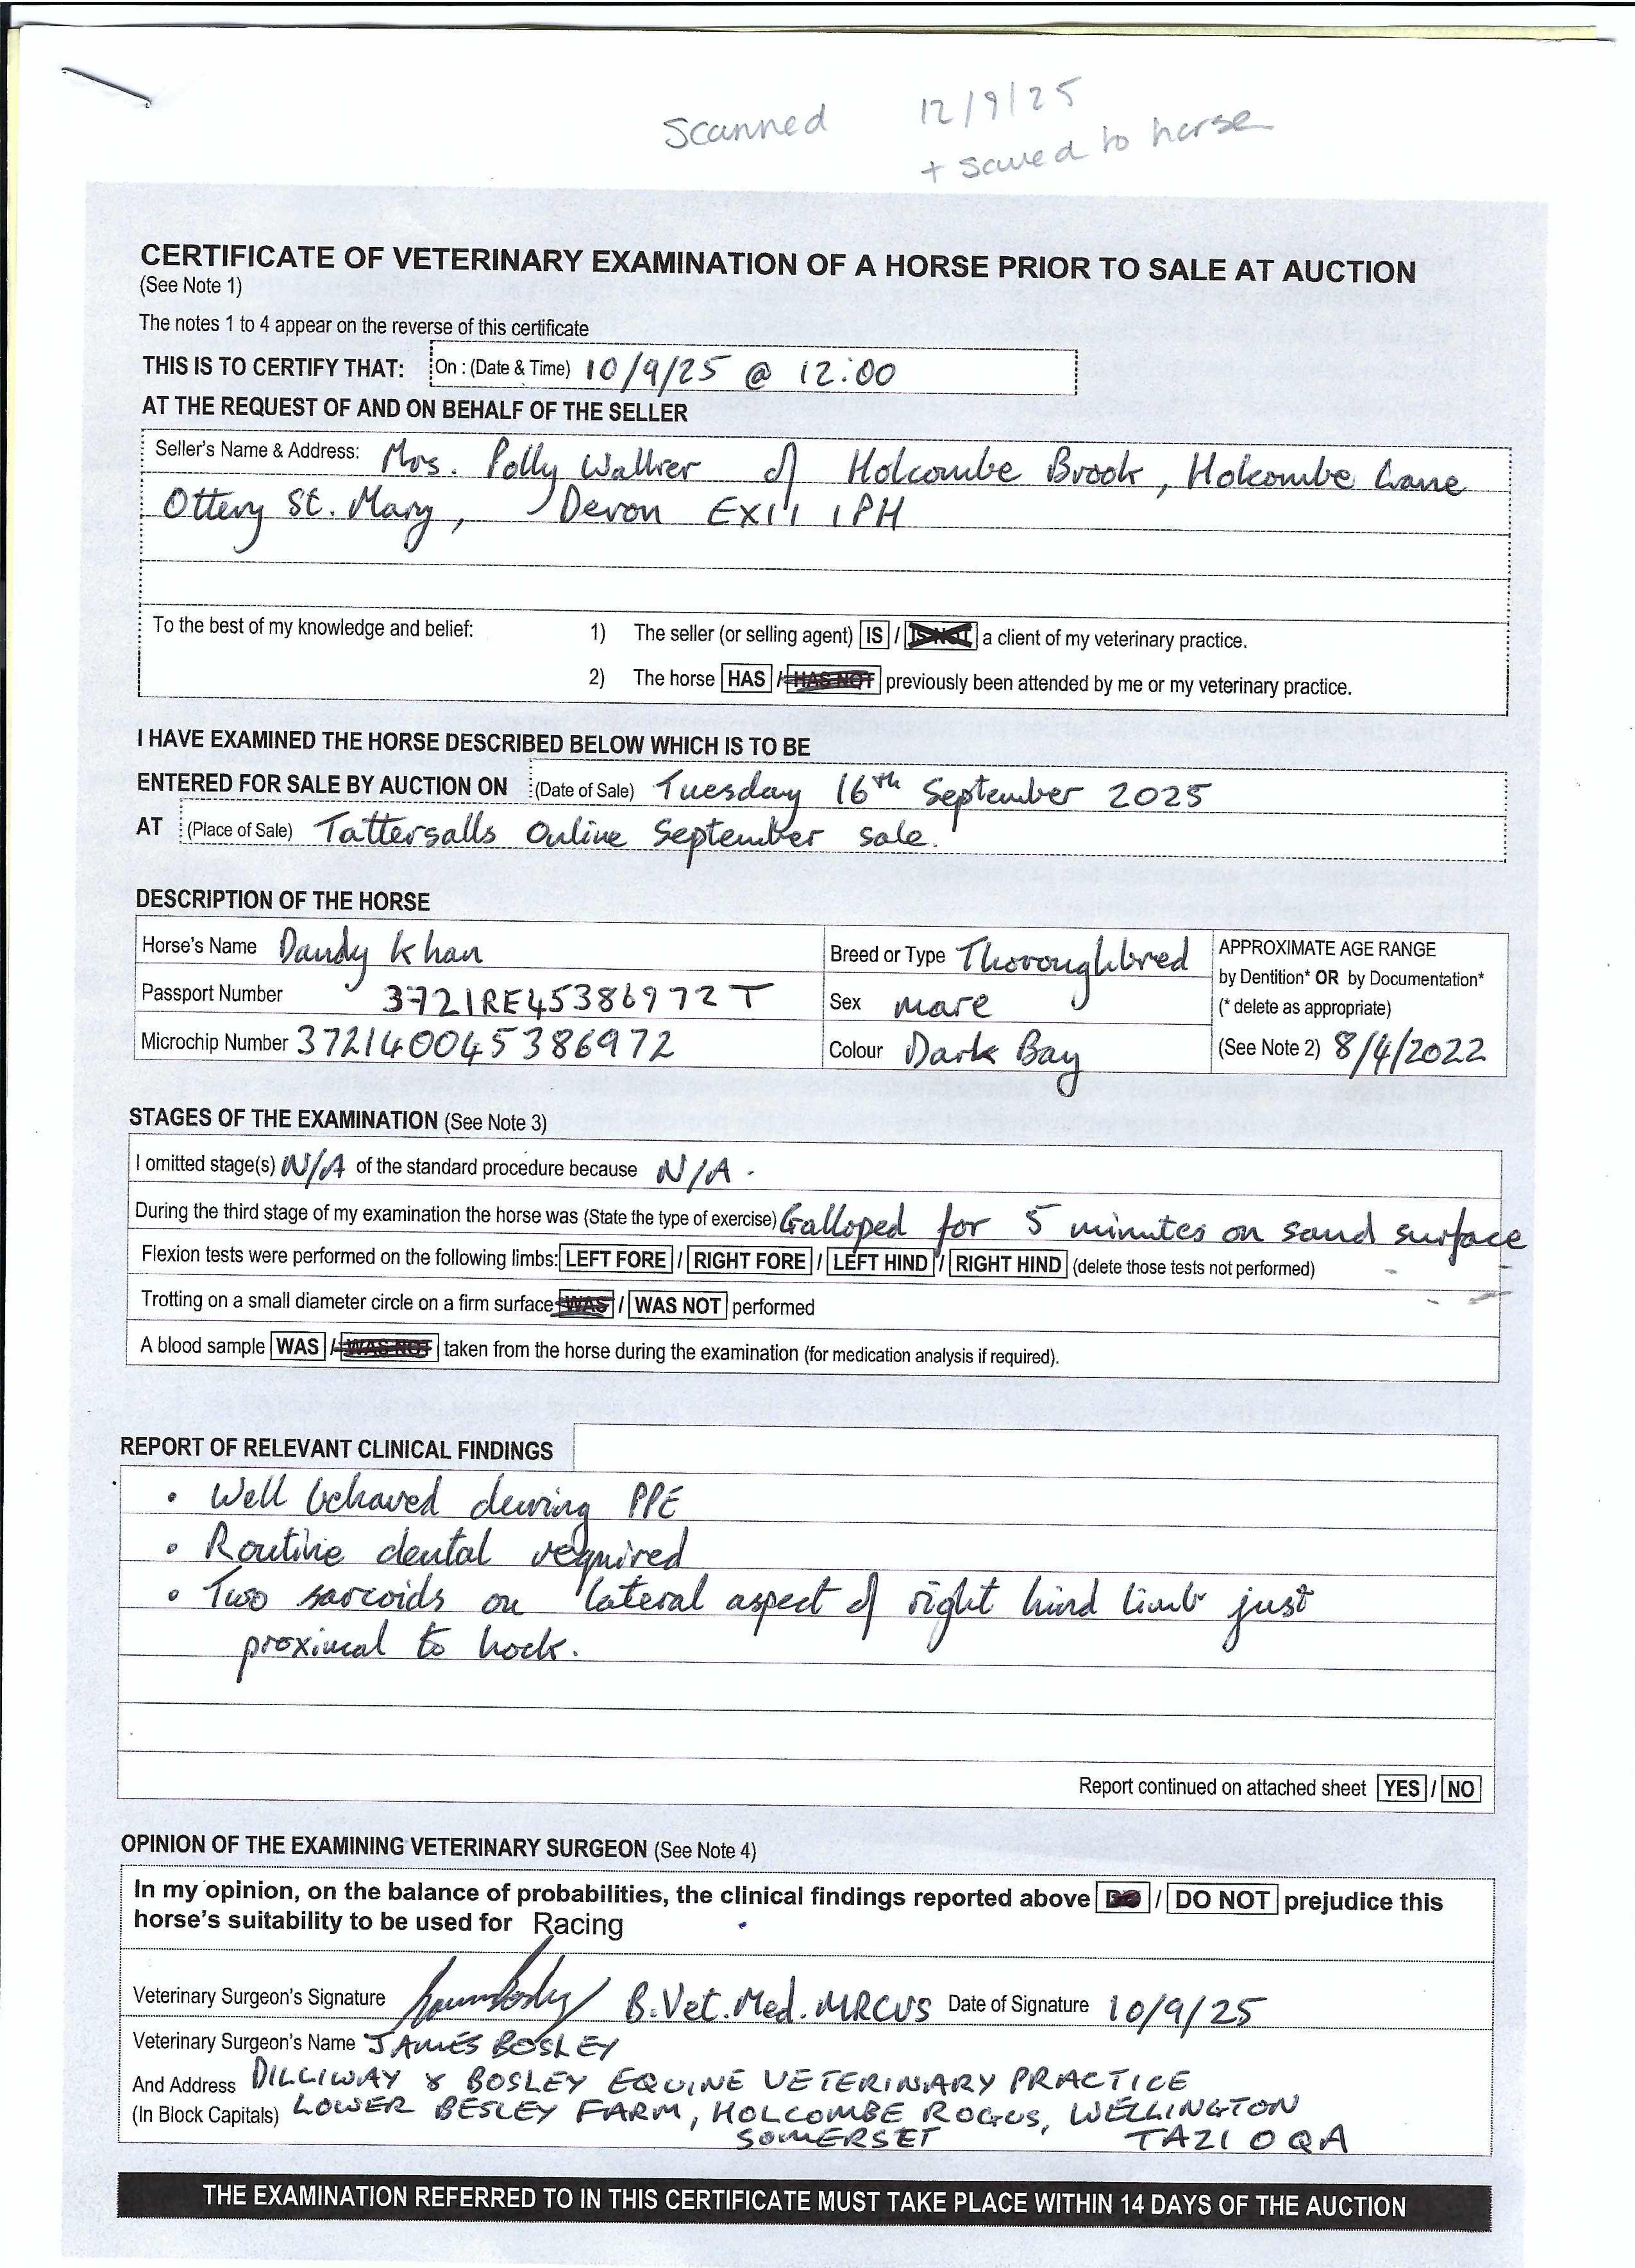 Scanned 12/9/25
+ saved to horse
CERTIFICATE OF VETERINARY EXAMINATION OF A HORSE PRIOR TO SALE AT AUCTION
(See Note 1)
The notes 1 to 4 appear on the reverse of this certificate
THIS IS TO CERTIFY THAT: On : (Date & Time) 10/9/25 @ 12:00
AT THE REQUEST OF AND ON BEHALF OF THE SELLER
Seller's Name & Address: Mrs. Polly Walker of Holcombe Brook, Holcombe Lane
Ottery St. Mary, Devon EX11 1PH
To the best of my knowledge and belief: 1) The seller (or selling agent) IS / IS NOT a client of my veterinary practice.
2) The horse HAS / HAS NOT previously been attended by me or my veterinary practice.
I HAVE EXAMINED THE HORSE DESCRIBED BELOW WHICH IS TO BE
ENTERED FOR SALE BY AUCTION ON (Date of Sale) Tuesday 16th September 2025
AT (Place of Sale) Tattersalls Online September sale.
DESCRIPTION OF THE HORSE
Horse's Name Dandy Khan Breed or Type Thoroughbred APPROXIMATE AGE RANGE
by Dentition* OR by Documentation*
Passport Number 372IRE45386972T Sex mare (* delete as appropriate)
Microchip Number 372140045386972 Colour Dark Bay (See Note 2) 8/4/2022
STAGES OF THE EXAMINATION (See Note 3)
I omitted stage(s) N/A of the standard procedure because N/A.
During the third stage of my examination the horse was (State the type of exercise) Galloped for 5 minutes on sand surface
Flexion tests were performed on the following limbs: LEFT FORE / RIGHT FORE / LEFT HIND / RIGHT HIND (delete those tests not performed)
Trotting on a small diameter circle on a firm surface WAS / WAS NOT performed
A blood sample WAS / WAS NOT taken from the horse during the examination (for medication analysis if required).
REPORT OF RELEVANT CLINICAL FINDINGS
• Well behaved during PPE
• Routine dental required
• Two sarcoids on lateral aspect of right hind limb just
proximal to hock.
Report continued on attached sheet YES / NO
OPINION OF THE EXAMINING VETERINARY SURGEON (See Note 4)
In my opinion, on the balance of probabilities, the clinical findings reported above DO / DO NOT prejudice this
horse's suitability to be used for Racing
Veterinary Surgeon's Signature B.Vet.Med.MRCVS Date of Signature 10/9/25
Veterinary Surgeon's Name JAMES BOSLEY
And Address DILLIWAY & BOSLEY EQUINE VETERINARY PRACTICE
(In Block Capitals) LOWER BESLEY FARM, HOLCOMBE ROGUS, WELLINGTON
SOMERSET TA21 0QA
THE EXAMINATION REFERRED TO IN THIS CERTIFICATE MUST TAKE PLACE WITHIN 14 DAYS OF THE AUCTION